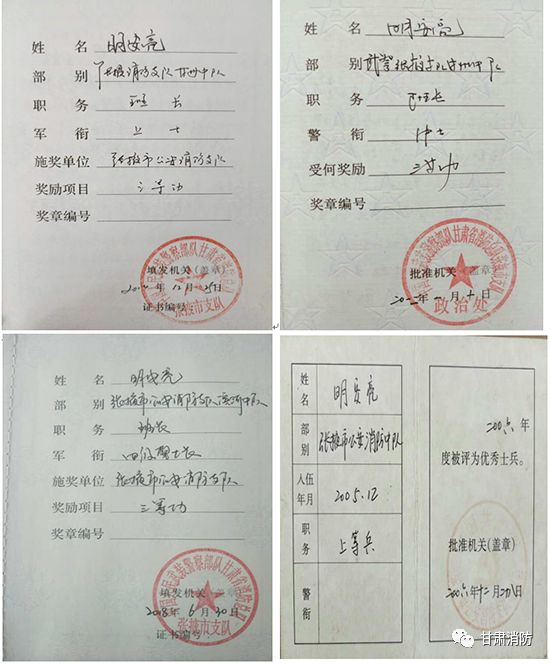 姓 名 明安亮
部 别 张掖消防支队甘州中队
职 务 班长
军 衔 上士
施奖单位 张掖市公安消防支队
奖励项目 三等功
奖章编号
填发机关(盖章)
年12月25日
证书编号:
张掖市支队
姓 名 明安亮
部 别
职 务 班长
警 衔 中士
受何奖励 三等功
奖章编号
批准机关(盖章)
政治处
姓 名 明安亮
部 别 张掖市公安消防支队滨河中队
职 务 班长
军 衔 四级警士长
施奖单位 张掖市公安消防支队
奖励项目 三等功
奖章编号
填发机关(盖章)
2018年6月30日
证书编号:
张掖市支队
姓名 明安亮
部别 张掖市公安消防中队
入伍年月 2005.12
职务 上等兵
警衔
2006年
度被评为优秀士兵。
批准机关(盖章)
2006年十二月 日
甘肃消防